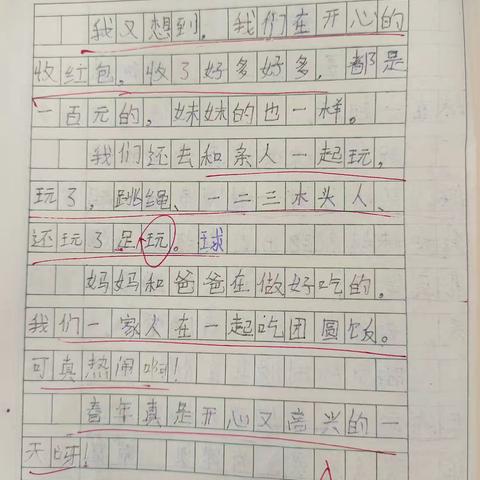 我又想到,我们在开心的
收红包。收了好多好多,都是
一百元的,妹妹的也一样。
我们还去和亲人一起玩,
玩了,跳绳、一二三木头人、
还玩了足玩。球
妈妈和爸爸在做好吃的。
我们一家人在一起吃团圆饭。
可真热闹啊!
年真是开心又高兴的一
天呀!